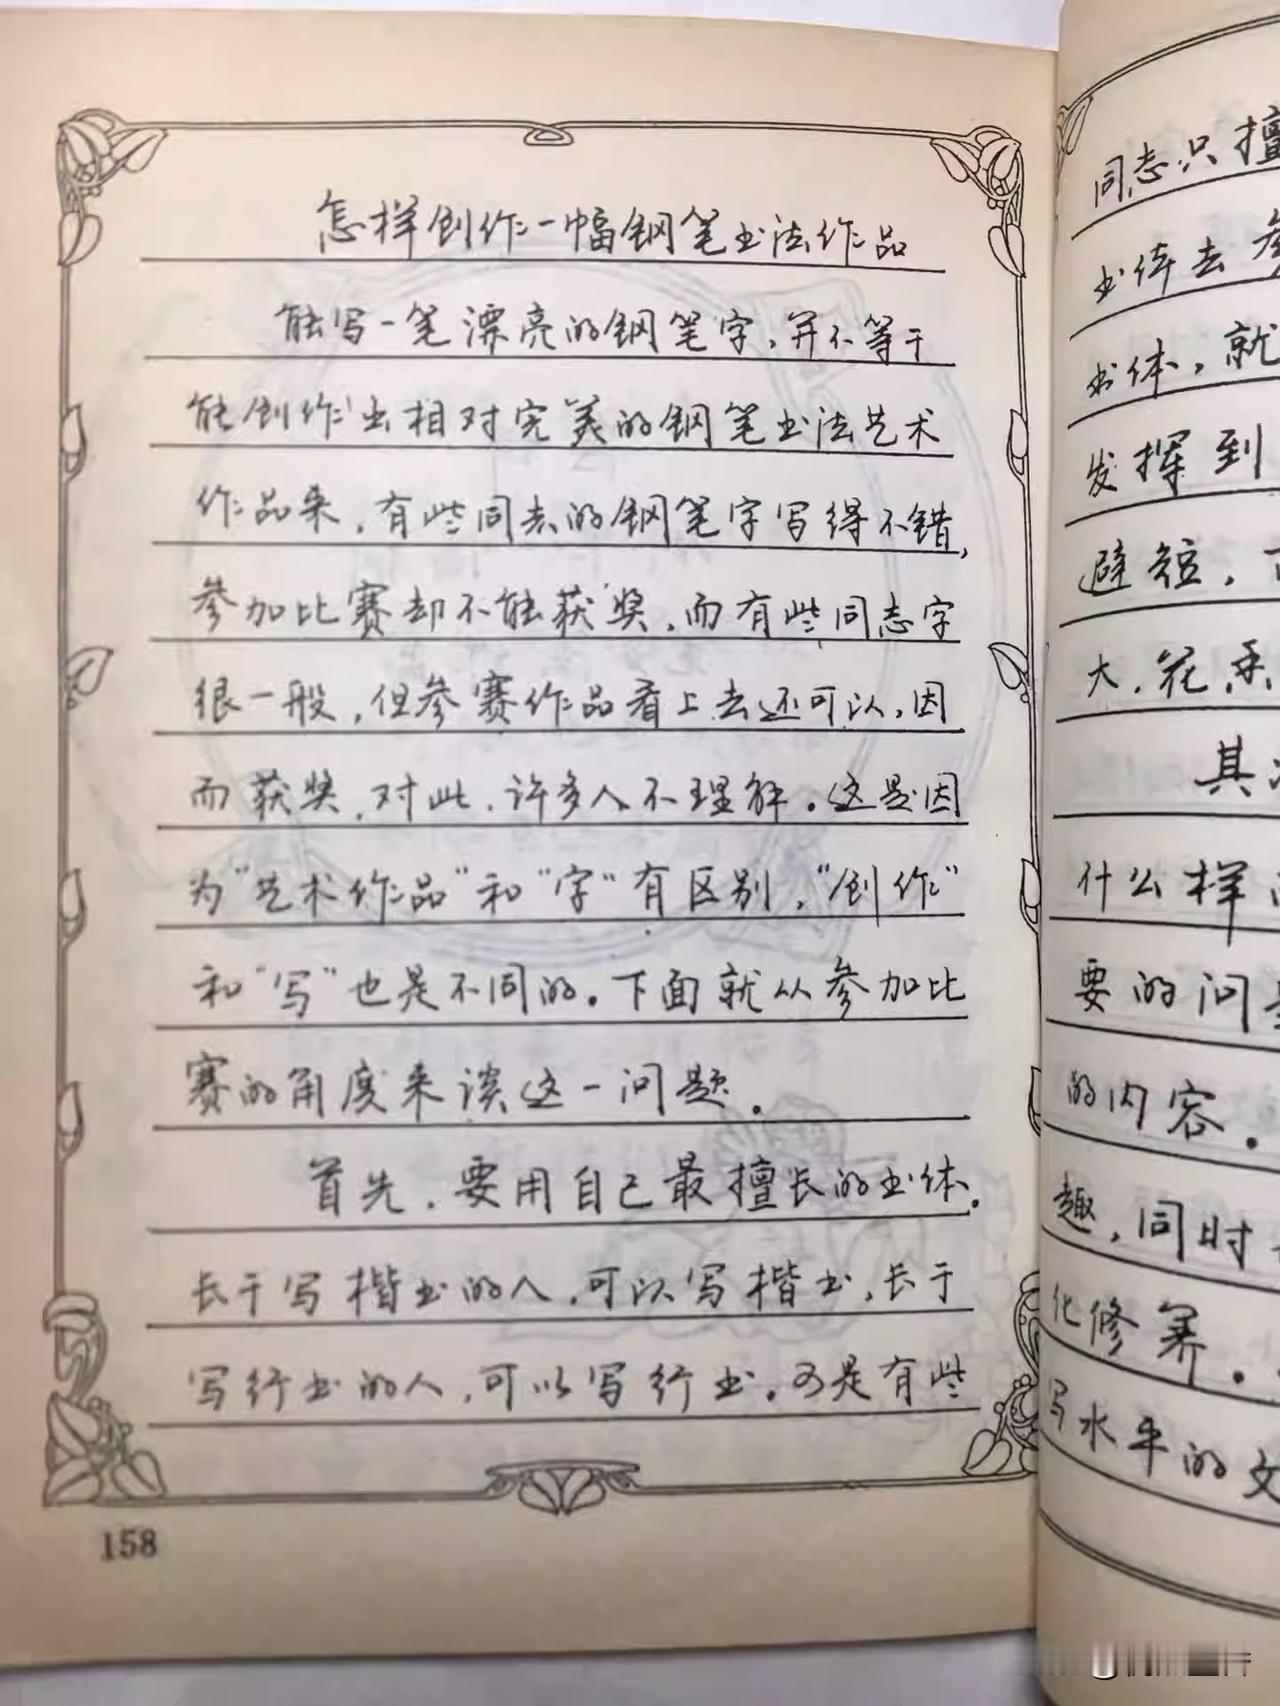 怎样创作一幅钢笔书法作品
能写一笔漂亮的钢笔字，并不等于
能创作出相对完美的钢笔书法艺术
作品来，有些同志的钢笔字写得不错，
参加比赛却不能获奖，而有些同志字
很一般，但参赛作品看上去还可以，因
而获奖，对此，许多人不理解。这是因
为“艺术作品”和“字”有区别，“创作”
和“写”也是不同的。下面就从参加比
赛的角度来谈这一问题。
首先，要用自己最擅长的书体。
长于写楷书的人，可以写楷书，长于
写行书的人，可以写行书。可是有些
158
同志只擅
书体去参
书体，就
发挥到
避短，
大，花，
其次
什么样的
要的问题
的内容。
趣，同时
化修养。
写水平的文